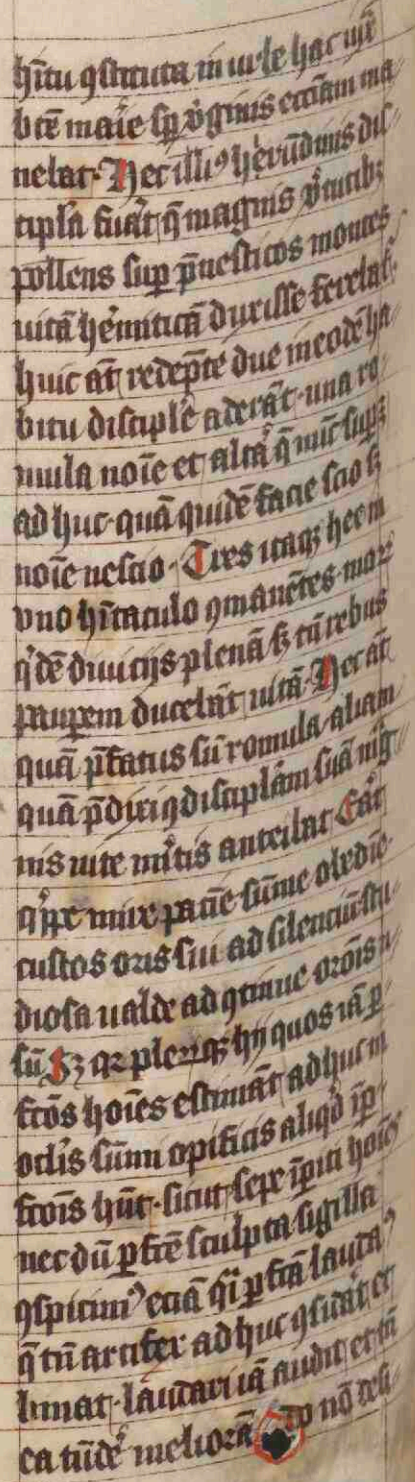 hĩtu ꝯstituta in urbe hac iux̃
btẽ marie sꝑ v̾ginis ecc̃iam ma
nebat. Hec illiꝰ herũdinis dis
cipl̃a fuãt q̃ magnis v̾tutibꝫ
pollens suꝑ p̃nestĩos montes
uitã heͬmiticã duxisse ferebat̾.
huic aũt redẽpte due in eodẽ ha
bitu disciple aderãt. una ro
mula noĩe et alt̾a q̃ nũc suꝑẽ
adhuc. quã quidẽ facie scio sꝫ
noĩe nescio. Tres itaqꝫ hee in
vno hĩtaculo ꝯmanẽtes. mor̃
qͥdẽ diuicijs plenã sꝫ tñ rebus
pauꝑem ducebãt uitã. Hec aũt
quã p̃fatus sũ romula. aliam
quã p̃dixi ꝯdiscipl̃am suã mag
nis uite mͥtis anteibat. Eãt
qͥppe mire paciẽ. sũme obediẽ
custos oris sui ad silenciũ stu
diosa ualde ad ꝯtinue orõis u
sũ. Sꝫ qꝛ plerũqꝫ hij quos iã ꝑ
fectos hoĩes estimãt adhuc in
ocl̃is sũmi opificis aliqͥd ĩꝑ
fectõis hñt. sicut sepe ĩꝑiti hoĩes
nec dũ ꝑfecte sculpta sigilla
ꝯspicimꝰ etiã qͣi ꝑfcã laudamꝰ
q̃ tñ artifex adhuc ꝯsidãt et
limat. laudari iã audit. et tñ
ea tũdẽ meliorãdo nõ desi